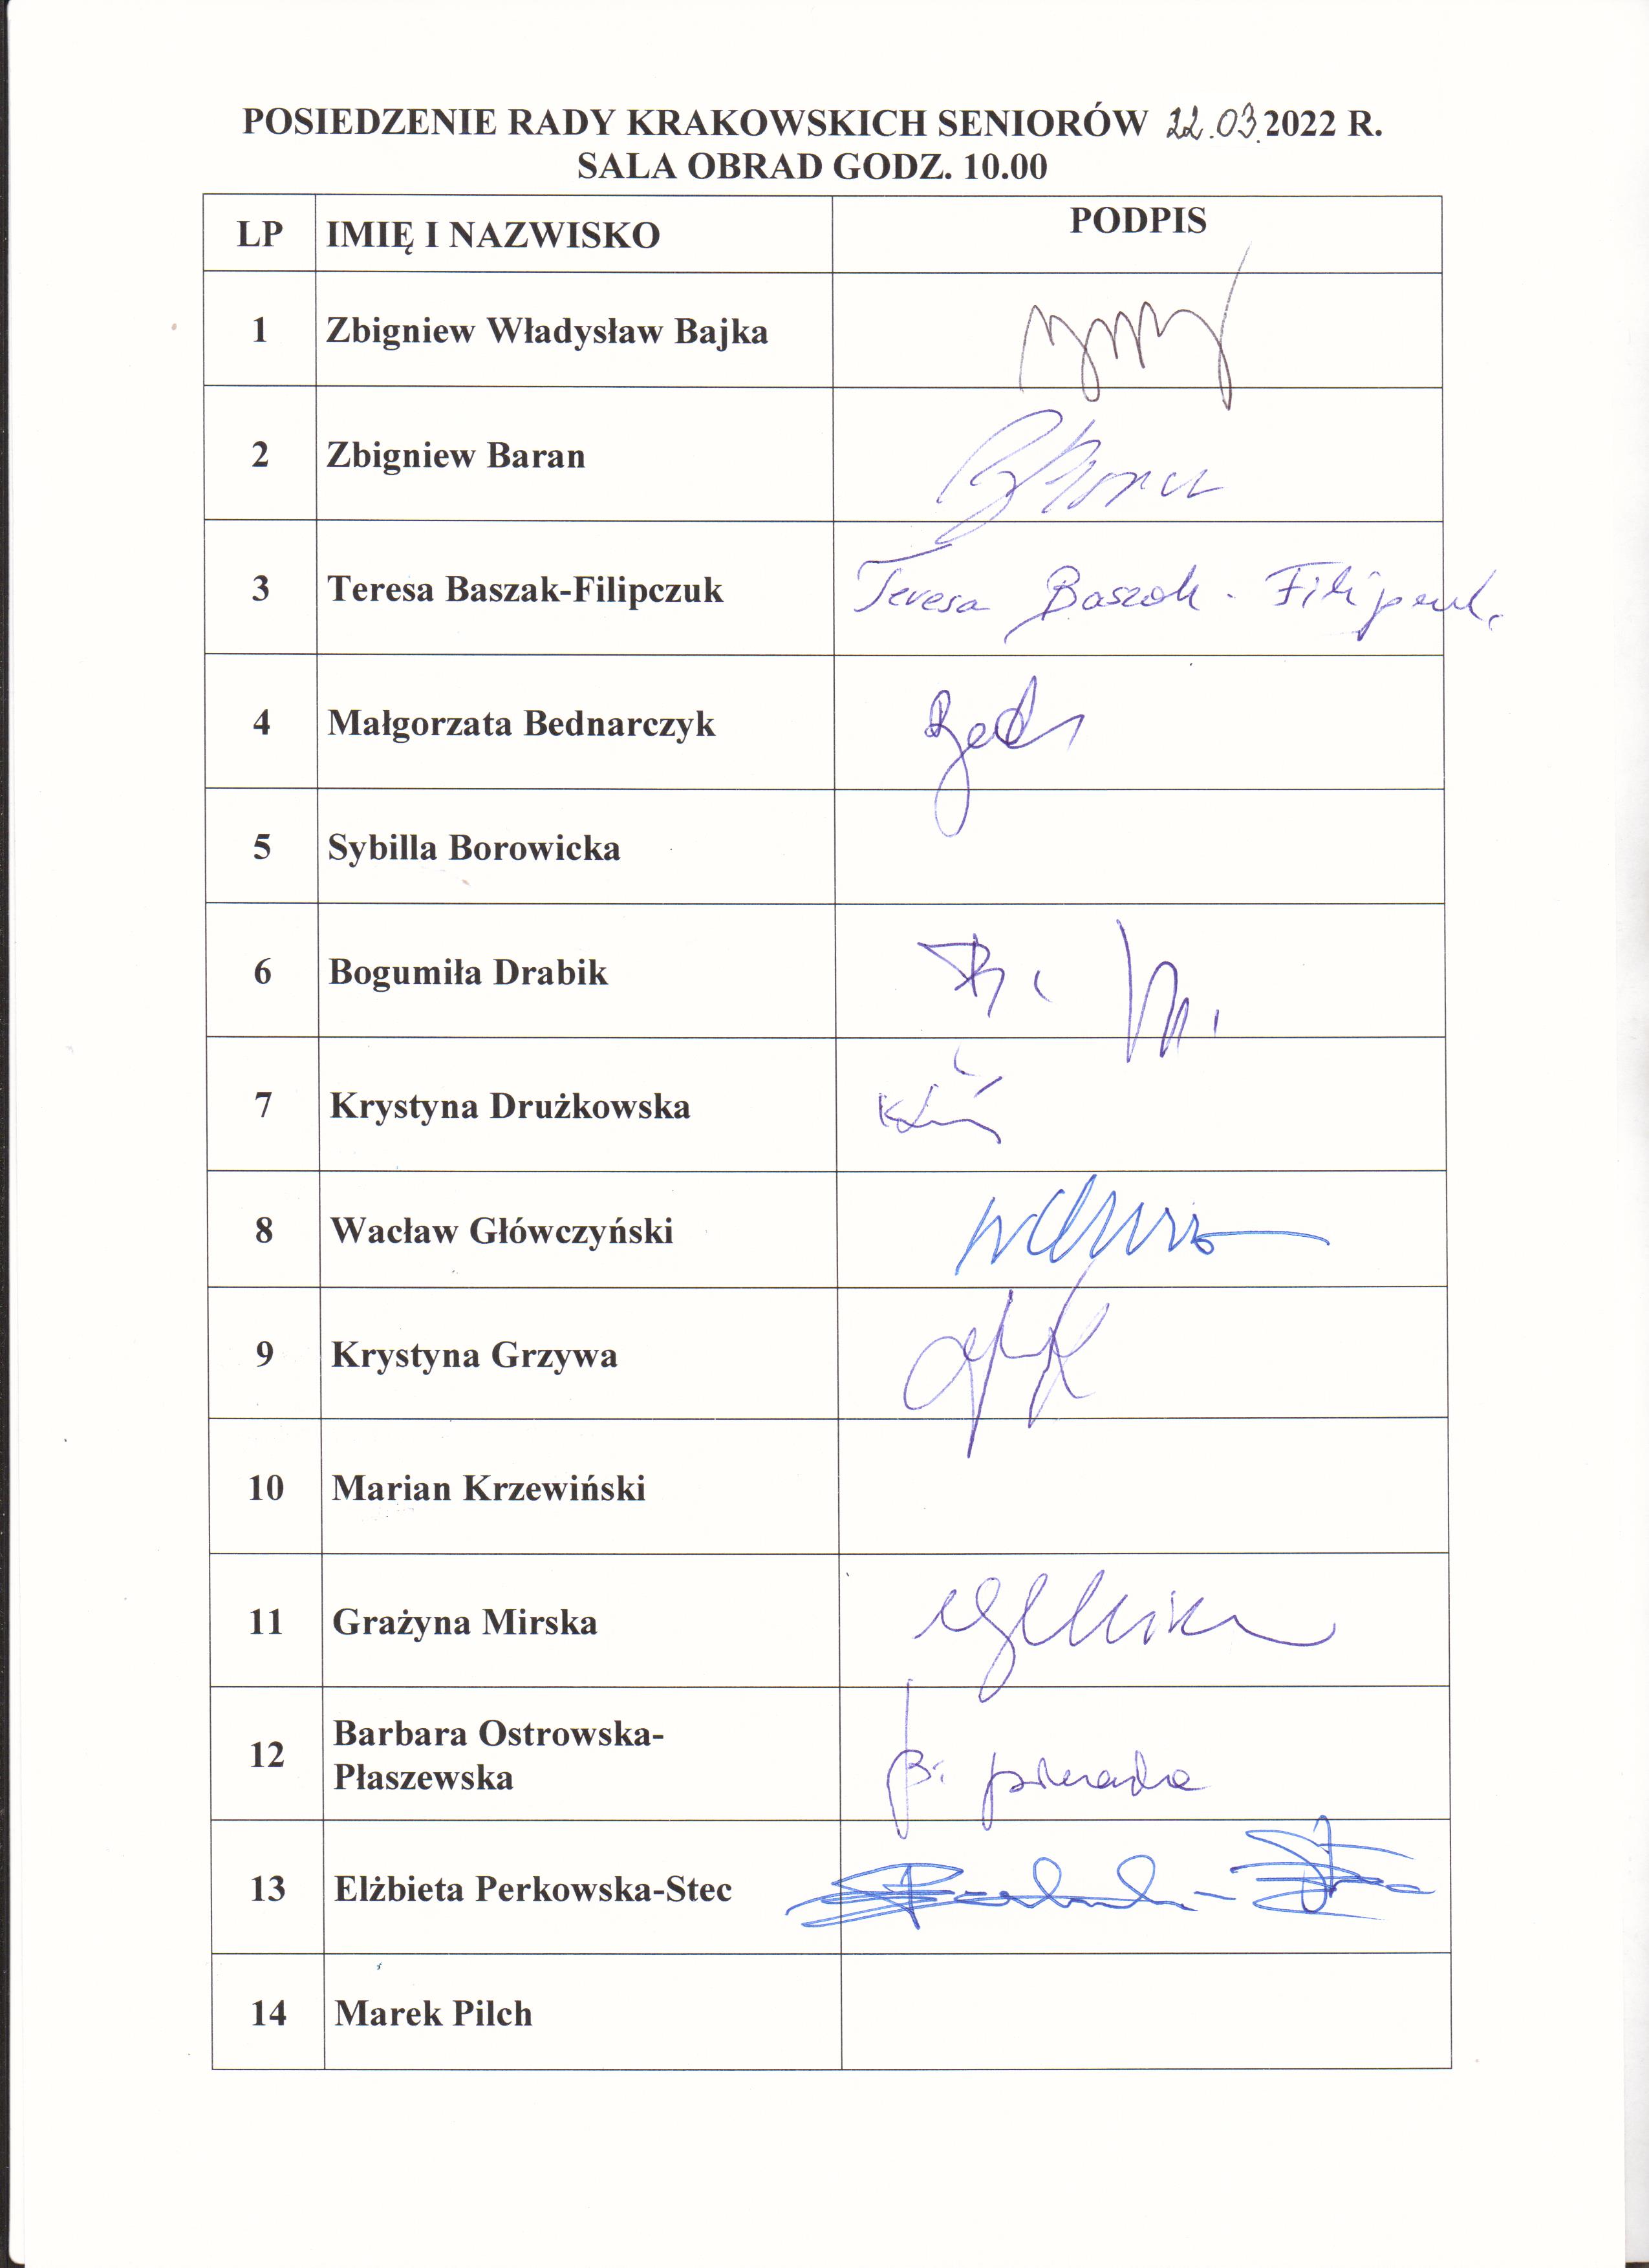 POSIEDZENIE RADY KRAKOWSKICH SENIORÓW 22.03.2022 R.
SALA OBRAD GODZ. 10.00
LP IMIĘ I NAZWISKO PODPIS
1 Zbigniew Władysław Bajka
2 Zbigniew Baran
3 Teresa Baszak-Filipczuk Teresa Baszak-Filipczuk
4 Małgorzata Bednarczyk
5 Sybilla Borowicka
6 Bogumiła Drabik
7 Krystyna Drużkowska
8 Wacław Główczyński
9 Krystyna Grzywa
10 Marian Krzewiński
11 Grażyna Mirska
12 Barbara Ostrowska-
Płaszewska
13 Elżbieta Perkowska-Stec
14 Marek Pilch